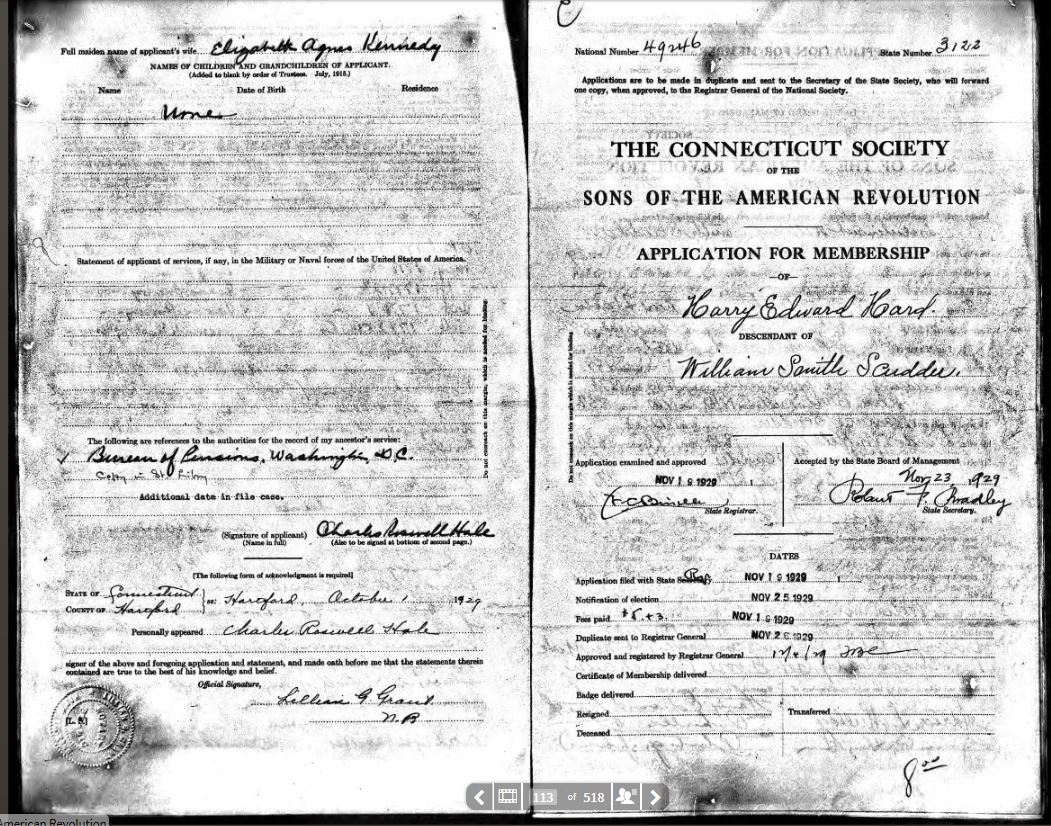 Full maiden name of applicant's wife Elizabeth Agnes Kennedy
NAMES OF CHILDREN AND GRANDCHILDREN OF APPLICANT.
(Added to blank by order of Trustees. July, 1915.)
Name Date of Birth Residence
None
Statement of applicant of services, if any, in the Military or Naval forces of the United States of America.
Do not encroach on this margin, which is needed for binding
The following are references to the authorities for the record of my ancestor's service:
Bureau of Pensions, Washington, D.C.
Copy in
Additional data in file case.
(Signature of applicant) Charles Roswell Hale
(Name in full) (Also to be signed at bottom of second page.)
[The following form of acknowledgment is required]
STATE OF Connecticut
COUNTY OF Hartford ss: Hartford, October 1 1929
Personally appeared Charles Roswell Hale
signer of the above and foregoing application and statement, and made oath before me that the statements therein
contained are true to the best of his knowledge and belief.
Official Signature,
Lillian G. Grant
N.P.
[L. S.]
National Number 49246 State Number 3122
Applications are to be made in duplicate and sent to the Secretary of the State Society, who will forward
one copy, when approved, to the Registrar General of the National Society.
THE CONNECTICUT SOCIETY
OF THE
SONS OF THE AMERICAN REVOLUTION
APPLICATION FOR MEMBERSHIP
—OF—
Harry Edward Hard.
DESCENDANT OF
William Smith Scudder.
Do not encroach on this margin which is needed for binding
Application examined and approved
NOV 19 1929
State Registrar.
Accepted by the State Board of Management
Nov 23, 1929
F. Bradley
State Secretary.
DATES
Application filed with State NOV 19 1929
Notification of election NOV 25 1929
Fees paid $5 + 3. NOV 19 1929
Duplicate sent to Registrar General NOV 26 1929
Approved and registered by Registrar General
Certificate of Membership delivered
Badge delivered
Resigned Transferred
Deceased
8 00
113 of 518
American Revolution